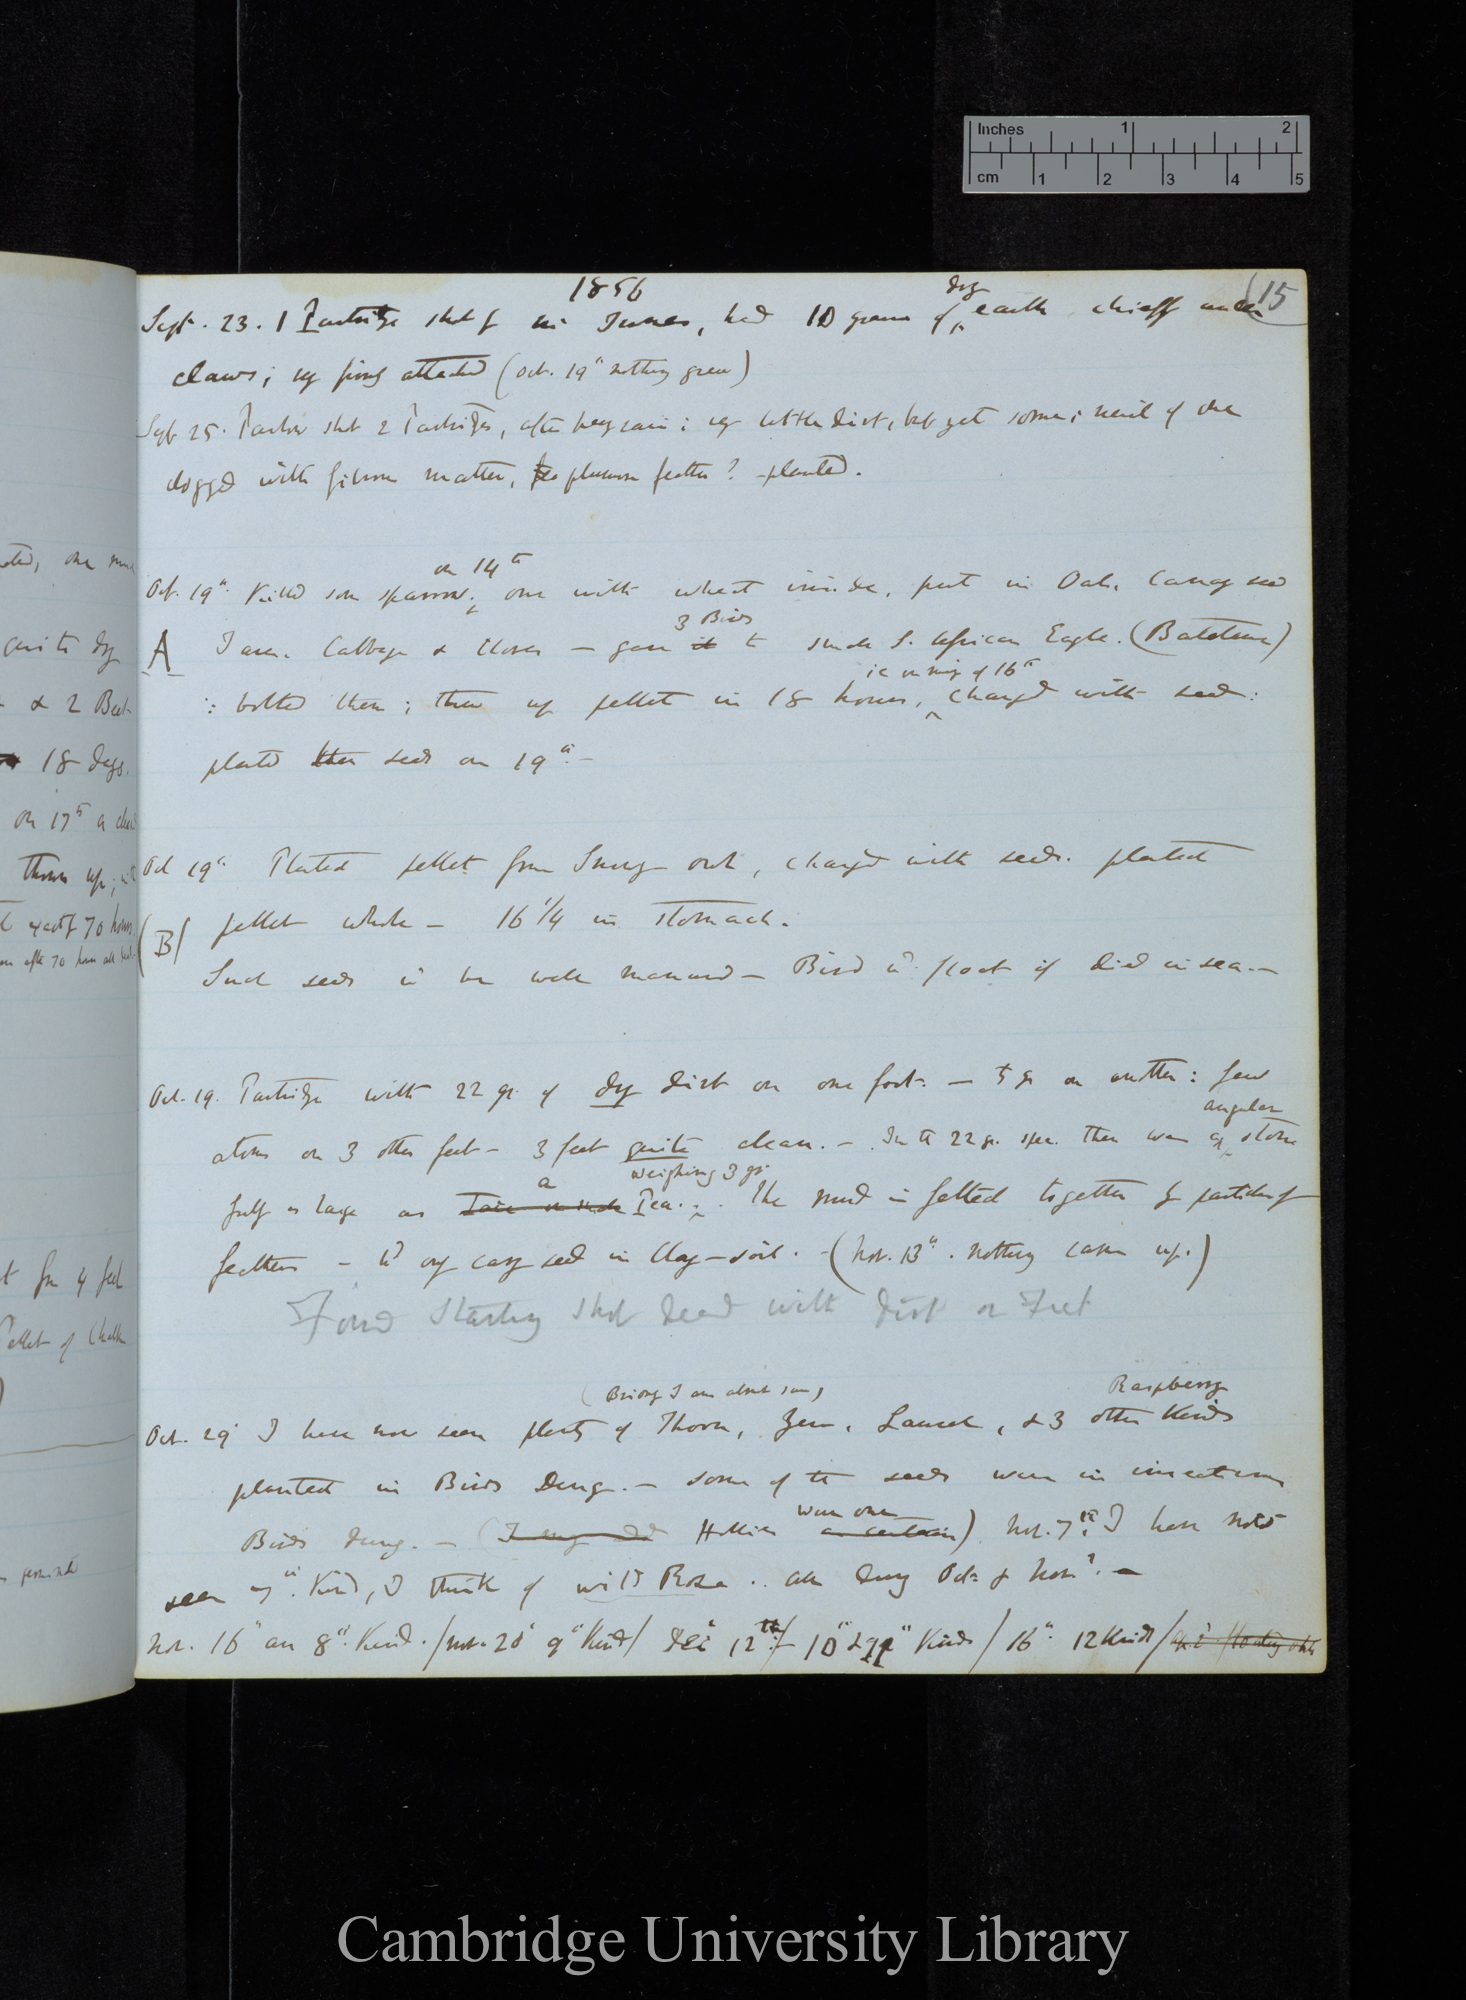 Inches 1 2
cm 1 2 3 4 5
1856
15
dry
Sept. 23. 1 Partridge shot by Mr Innes, had 10 grains of earth, chiefly under
claws; very firmly attached (Oct. 19th nothing grew)
Sept 25. Parslow shot 2 Partridges, after heavy rain; very little dirt, but yet some; nail of one
clogged with fibrous matter, plumose feather? planted.
on 14th
Oct. 19th Killed some sparrows, one with wheat inside, put in Oats, Canary seed
3 Birds
A Tares, Cabbage & Clover — gave it to small S. African Eagle. (Bateleur)
ie on mg of 16th
: bolted them; threw up pellet in 18 hours, charged with seed:
planted seeds on 19th. —
Oct 19th Planted pellet from Snowy owl, charged with seeds. planted
(B) pellet whole — 16 1/4 in stomach.
Such seeds wd be well manured — Bird wd float if died in sea. —
Oct. 19. Partridge with 22 gr. of dry dirt on one foot. — 5 gr on another: few
angular
atoms on 3 other feet — 3 feet quite clean. — In the 22 gr. spec. there was a stone
a weighing 3 gr.
fully as large as Pea. The mud is felted together by particles of
feathers — wd carry seed in Clay-soil. — (Nov. 13th. nothing came up.)
Found Starling shot dead with dirt on Feet
(Briony I am almost sure) Raspberry
Oct. 29 I have now seen plenty of Thorn, Yew, Laurel, & 3 other Kinds
planted in Birds Dung. — Some of the seeds were in
were one
Birds dung. — (Hollies) Nov. 7th. I have now
seen 7th. Kind, I think of wild Rose. all during Oct. & Nov. —
Nov. 16th an 8th. Kind. / Nov. 20 9th Kind / Dec 12th / 10th & 11th Kinds / 16th. 12 Kinds /
on 17th a
18 days.
& 2 Beet
exactly 70 hours
from 4 feet
Pellet of Chalk
Cambridge University Library